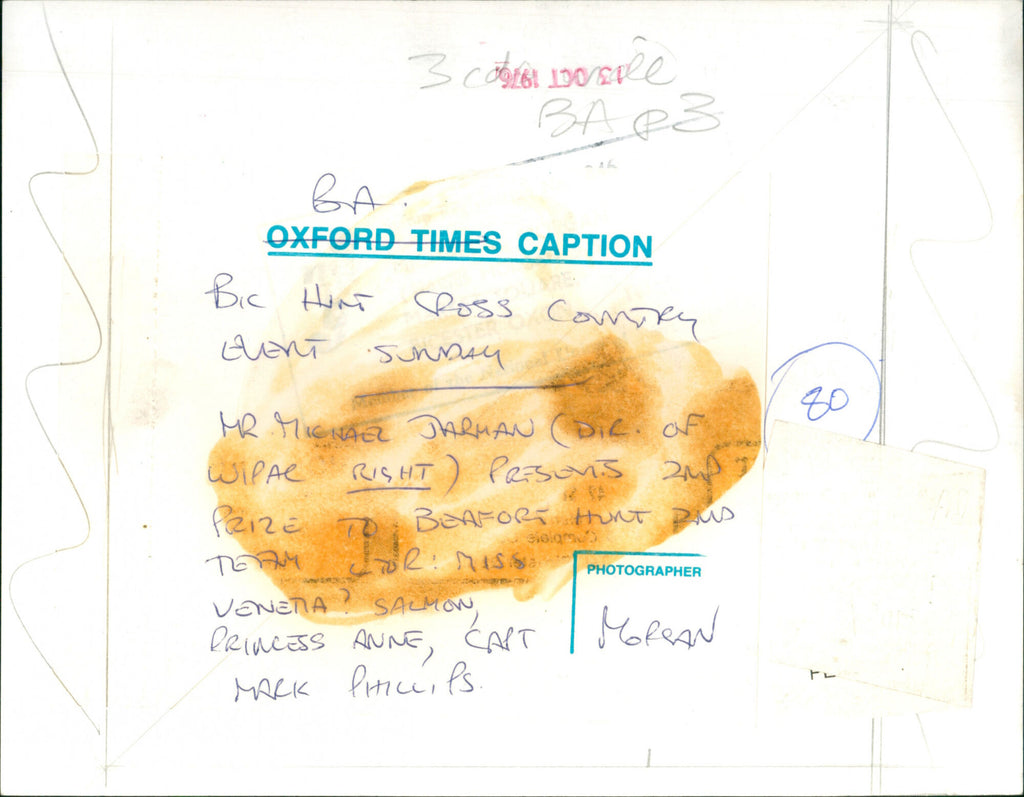 3 cols
13 OCT 1976
BA P3
BA.
OXFORD TIMES CAPTION
BIC HUNT CROSS COUNTRY
EVENT SUNDAY
MR MICHAEL JARMAN (DIR. OF
WIPAC RIGHT) PRESENTS 2ND
PRIZE TO BEAFORT HUNT 2ND
TEAM LTOR: MISS
VENETIA? SALMON,
PRINCESS ANNE, CAPT
MARK PHILLIPS.
PHOTOGRAPHER
MORGAN
80